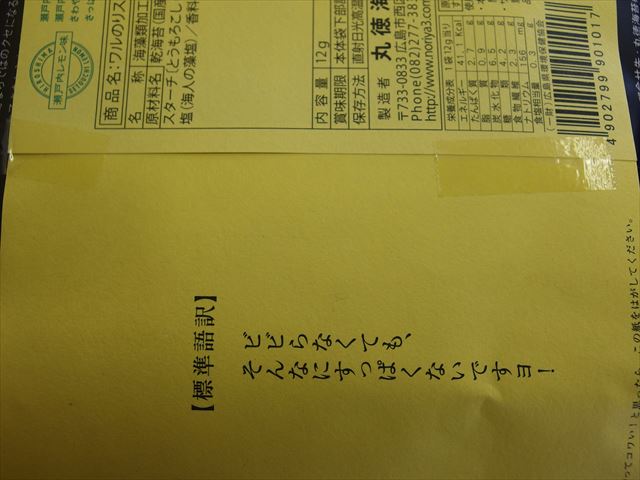 瀬戸内
瀬戸内レモン味
さわや
さっぱ
瀬戸内レモン味
商品名：ワルのりス
名 称 海藻類加工
原材料名 乾海苔（国産
スターチ（とうもろこし
塩（海人の藻塩）／香料
内容量 12g
賞味期限 本体袋下部
保存方法 直射日光高温
製造者 丸徳海
〒733-0833 広島市西区
Phone(082)277-38
http://www.nori-ya3.com
栄養成分表 1袋12g当り
エネルギー 41 Kcal
たんぱく質 2.7 g
脂 質 0.9 g
炭水化物 6.5 g
糖 類 4.2 g
食物繊維 2.3 g
ナトリウム 156 mg
食塩相当量 0.3 g
（一財）広島県環境保健協会
4 902799 901017
【標準語訳】
ビビらなくても、
そんなにすっぱくないですヨ！
ってコワい！と思ったら、この紙をはがしてください。